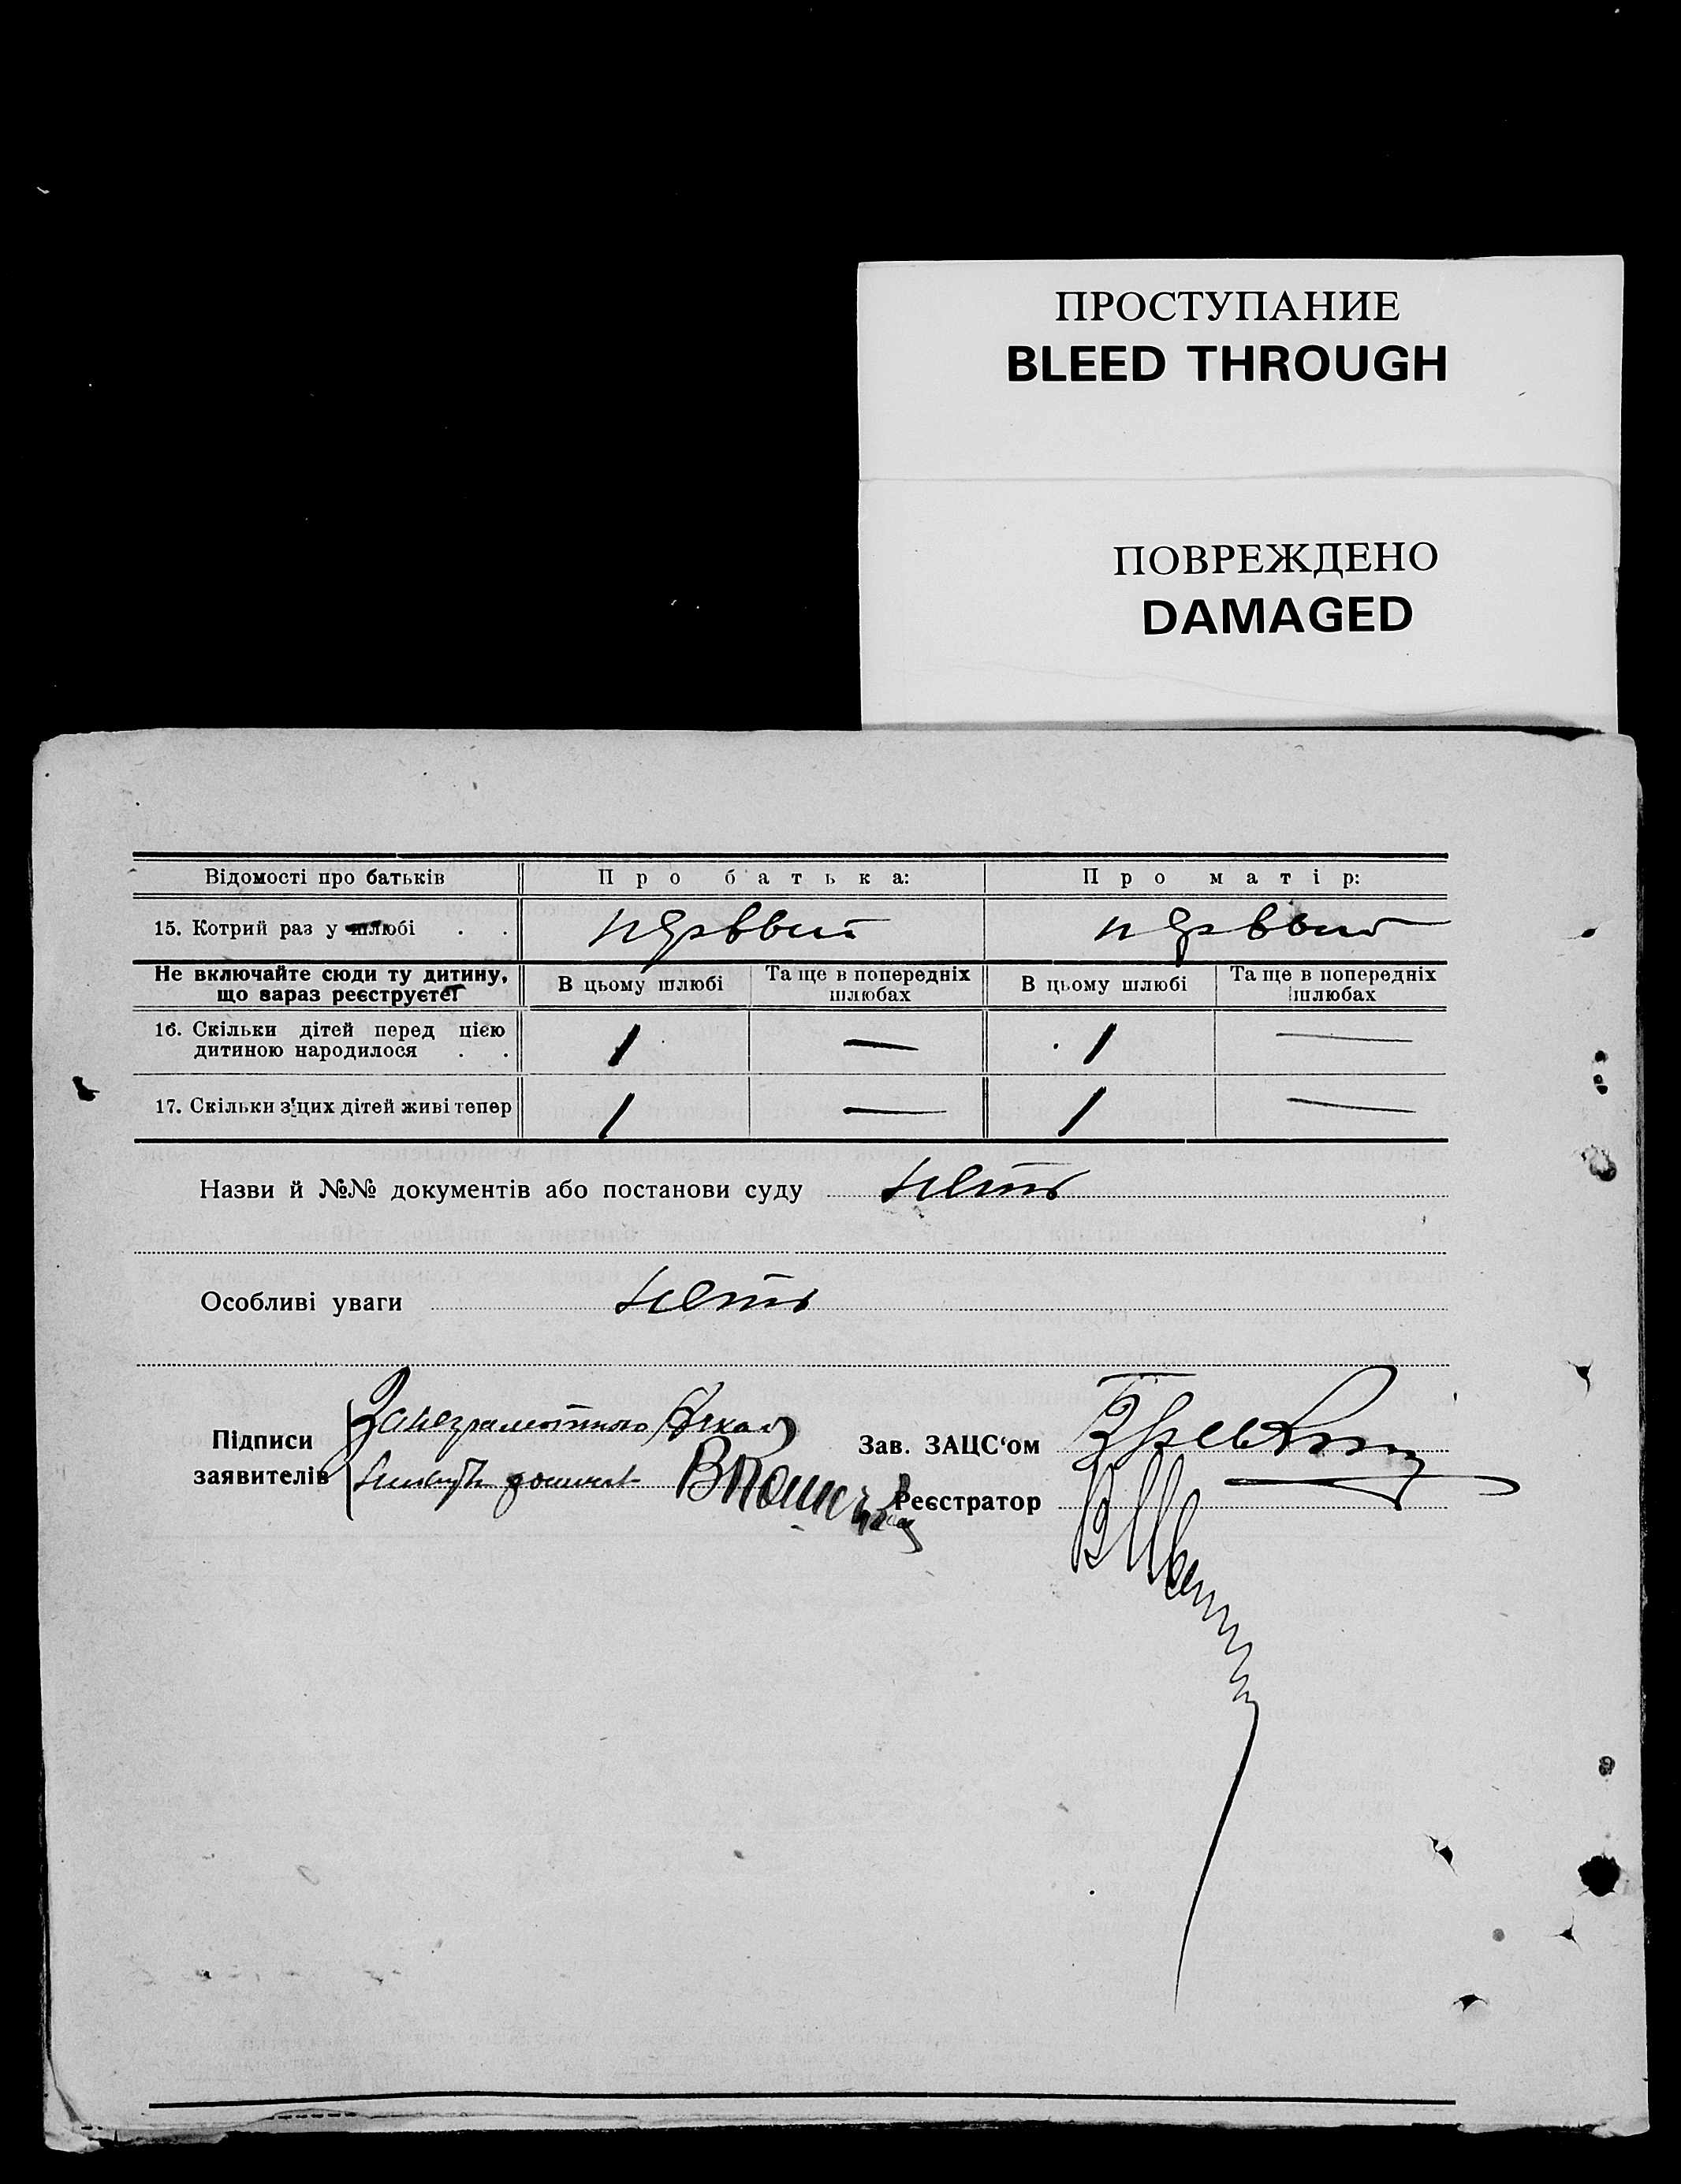 ПРОСТУПАНИЕ
BLEED THROUGH
ПОВРЕЖДЕНО
DAMAGED
Відомості про батьків Про батька: Про матір:
15. Котрий раз у шлюбі . . первый первый
Не включайте сюди ту дитину,
що зараз реєструєте
В цьому шлюбі
Та ще в попередніх
шлюбах
В цьому шлюбі
Та ще в попередніх
шлюбах
16. Скільки дітей перед цією
дитиною народилося . . 1 — 1 —
17. Скільки з цих дітей живі тепер 1 — 1 —
Назви й №№ документів або постанови суду нет
Особливі уваги нет
Підписи
заявителів
За неграмотного
Зав. ЗАЦС‘ом
Реєстратор